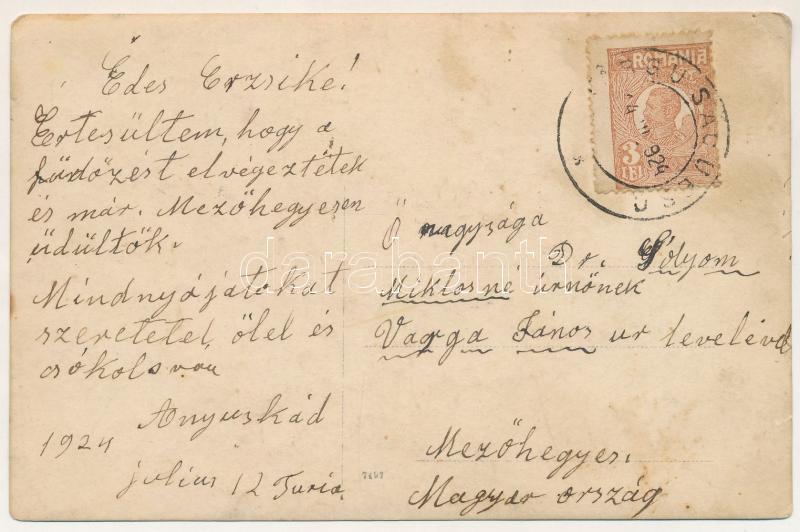 Édes Erzsike!
Értesültem, hogy a
fürdőzést elvégezték
és már. Mezőhegyesen
üdültök.
Mindnyájátokat
szeretetel, ölel és
csókol
Anyuskád
1924
julius 12 Turia.
ROMANIA
3 LEI
924
Ő nagysága
Dr. Sólyom
Miklosné úrnőnek
Varga János ur levelével
Mezőhegyes.
Magyar ország
darabanth